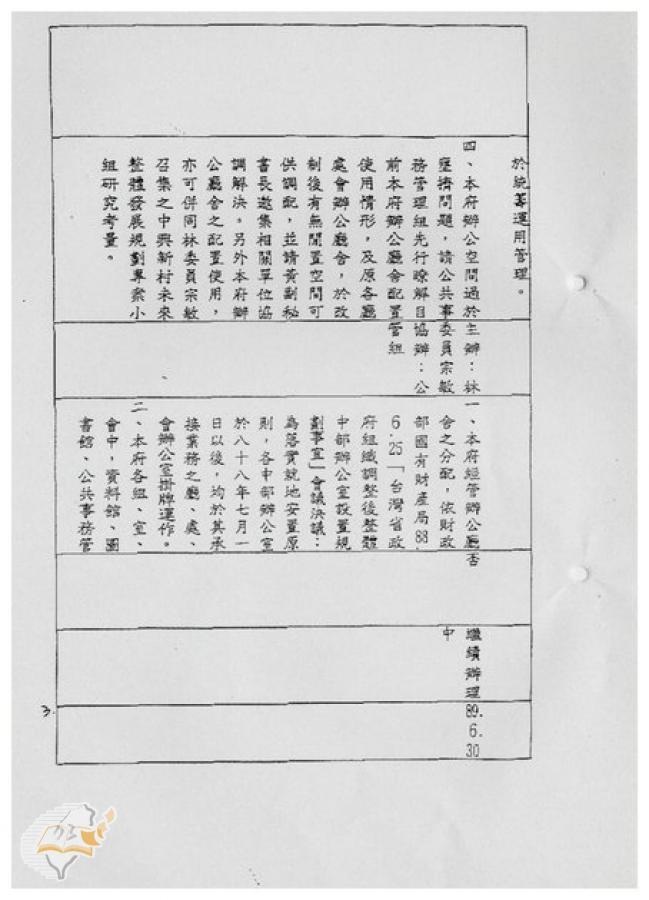 於統籌運用管理。
四、本府辦公空間過於
壅擠問題，請公共事
務管理組先行瞭解目
前本府辦公廳舍配置
使用情形，及原各廳
處會辦公廳舍，於改
制後有無閒置空間可
供調配，並請黃副秘
書長邀集相關單位協
調解決。另外本府辦
公廳舍之配置使用，
亦可併同林委員宗敏
召集之中興新村未來
整體發展規劃專案小
組研究考量。
主辦：林
委員宗敏
協辦：公
管組
一、本府經管辦公廳
舍之分配，依財政
部國有財產局88.
6.25「台灣省政
府組織調整後整體
中部辦公室設置規
劃事宜」會議決議：
為落實就地安置原
則，各中部辦公室
於八十八年七月一
日以後，均於其承
接業務之廳、處、
會辦公室掛牌運作。
二、本府各組、室、
會中，資料館、圖
書館、公共事務管
否
繼續辦理
中
89.
6.
30
3.